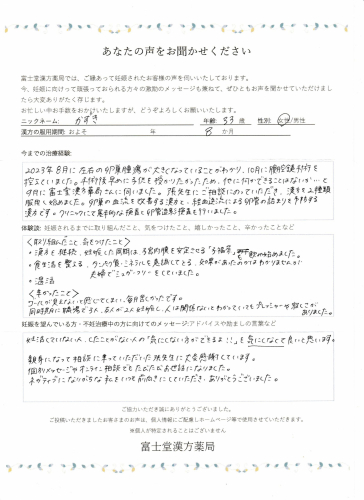 あなたの声をお聞かせください
富士堂漢方薬局では、ご縁あって妊娠されたお客様の声を伺いいたしております。
今、妊娠に向けって頑張っておられる方々の激励のメッセージも兼ねて、ぜひともお声を聞かせていただけましたら大変ありがたく存じます。
お忙しい中お手数をおかけいたしますが、どうぞよろしくお願いいたします。
ニックネーム: かずき 年齢: 33 歳 性別: 女性/男性
漢方の服用期間: およそ 年 8 か月
今までの治療経験:
2023年8月に左右の卵巣腫瘍が大きくなっていることがわかり、10月に腹腔鏡手術を
控えていました。手術後早めに子供を授かりたかったため、他に何かできることはないか…と
9月に富士堂漢方薬局さんに伺いました。張先生にご相談にのっていただき、漢方を2種類
服用し始めました。卵巣の血流を改善する漢方と、経血逆流による卵管の詰まりを予防する
漢方です。クリニックにて
体験談: 妊娠されるまでに取り組んだこと、気をつけたこと、嬉しかったこと、辛かったことなど
<取り組んだこと、気をつけたこと>
・漢方を継続、妊娠した周期は
・食生活を整える
夫婦で
・温活
<辛かったこと>
ゴールが見えないと感じてしまい、毎日苦しかったです。
同時期に職場で3人、友人が2人妊娠し、人は関係ないとわかっていてもプレッシャーや悲しさが
ありました。
妊娠を望んでいる方・不妊治療中の方に向けてのメッセージ:アドバイスや励ましの言葉など
妊活していない人、したことがない人の「気にしない方ができるよ!!」も気にしなくて良いと思います。
親身になって相談に乗っていただいた張先生に大変感謝しています。
個別メッセージやオンライン相談でもたびたびお世話になりました。
ネガティブになりがちな私をいつも前向きにしていただき、ありがとうございました。
ご協力いただき誠にありがとうございました。
ご投稿いただきましたお客さまのお声は、個人情報にご配慮しホームページ等で使用させていただきます。
※個人が特定されることはございません
富士堂漢方薬局